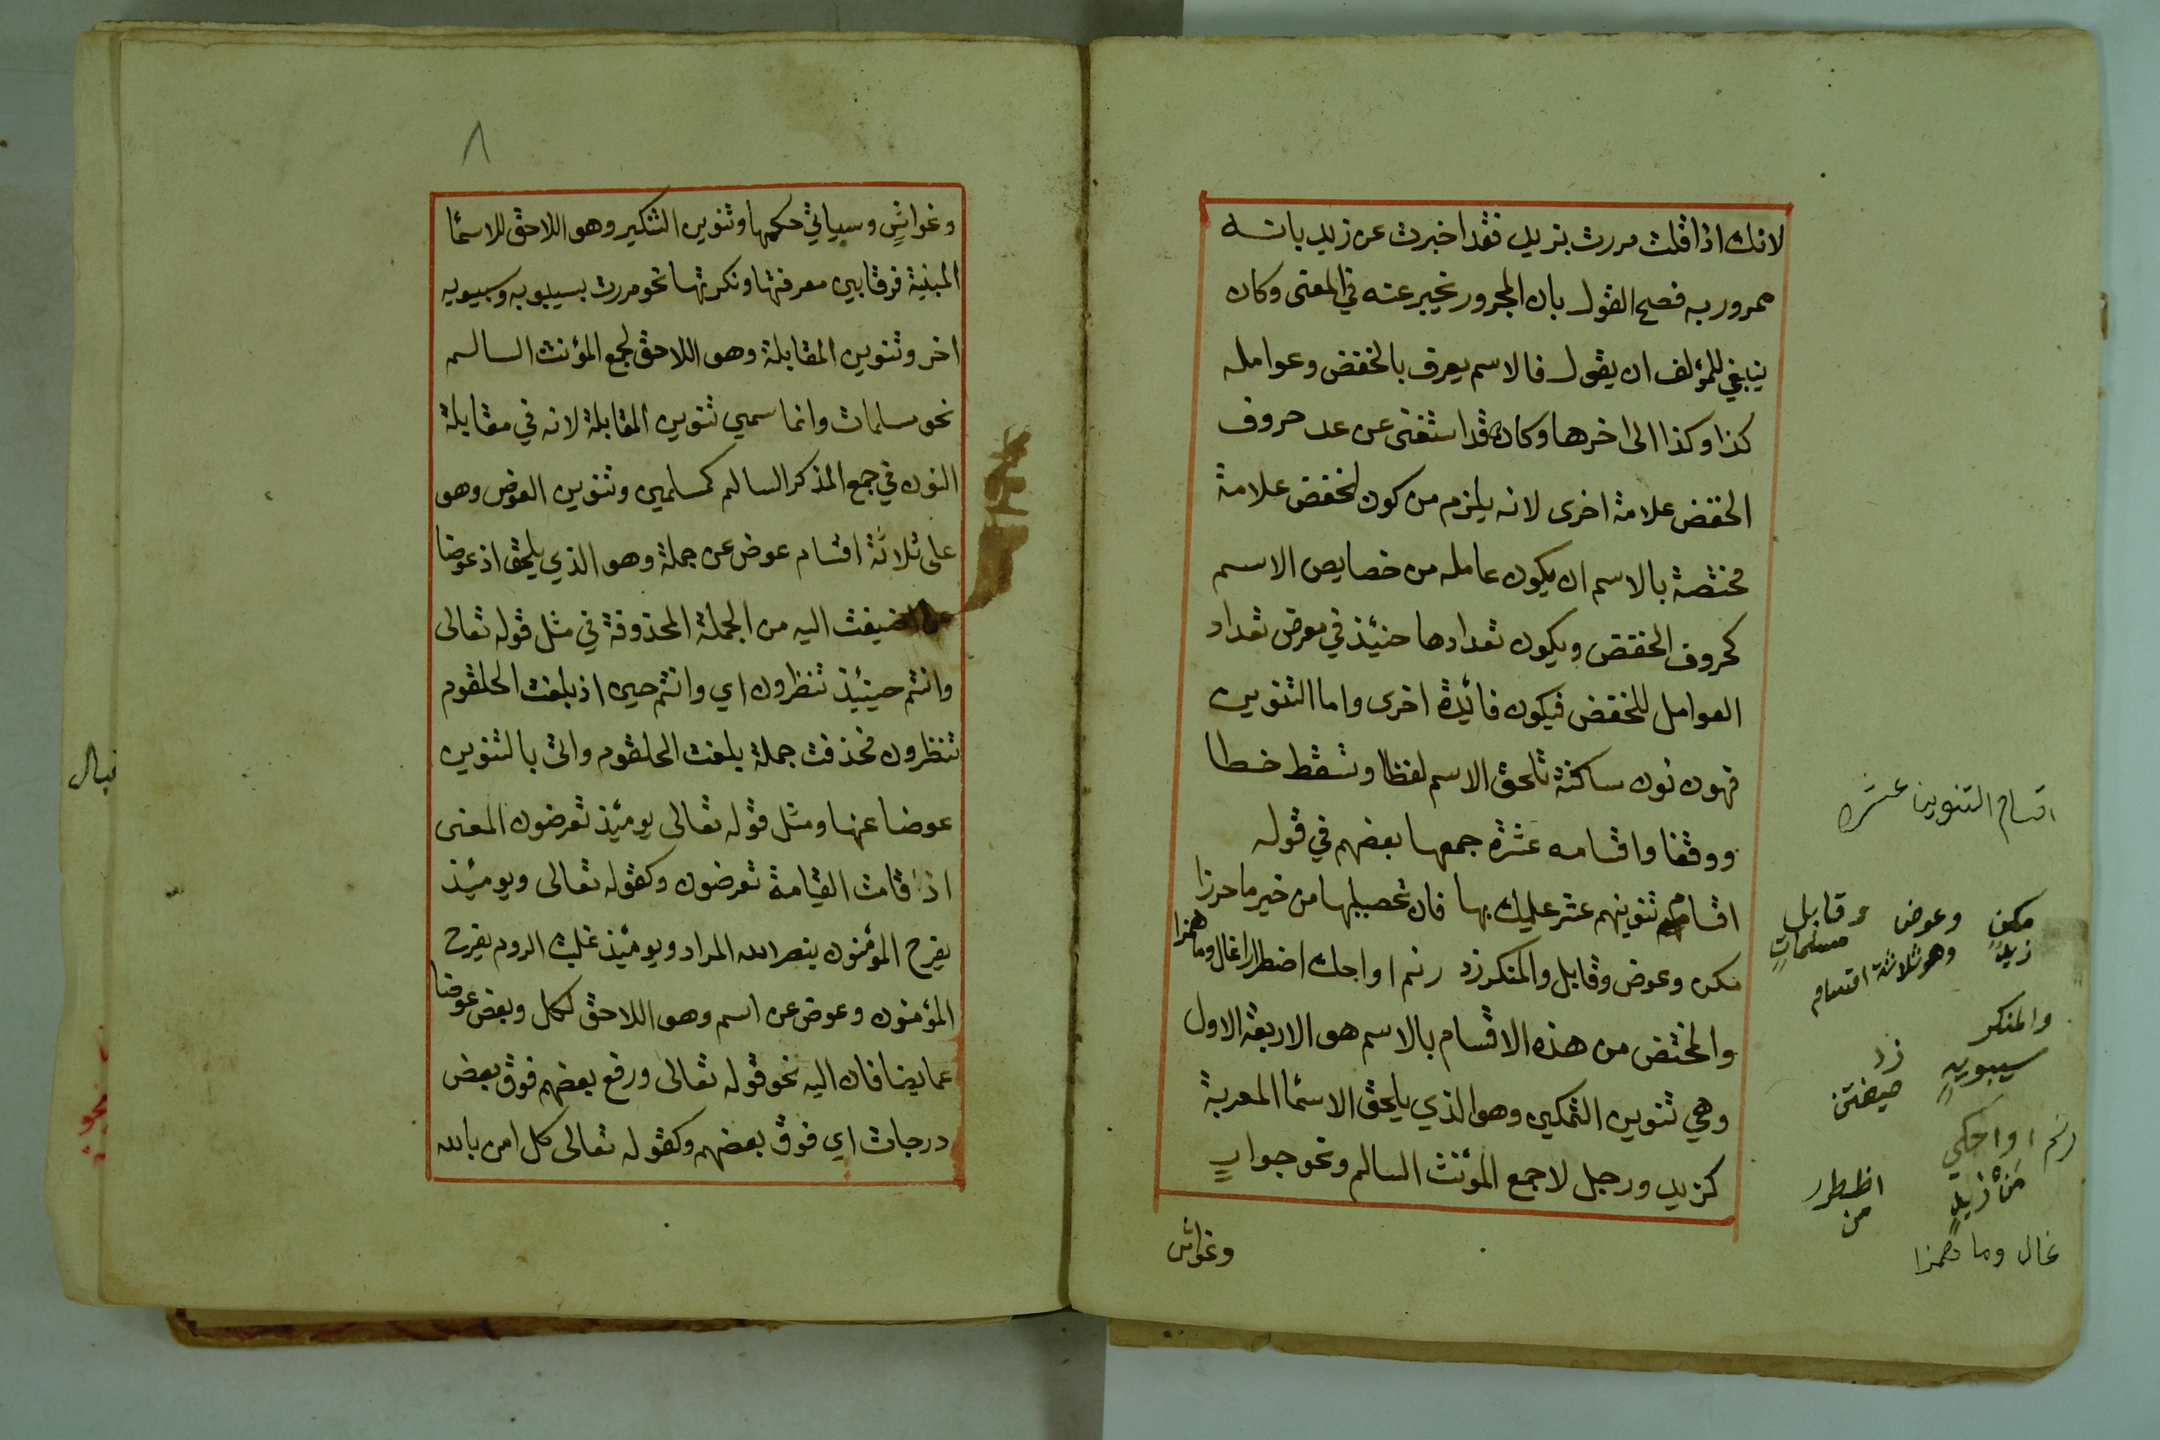 لانك اذا قلت مررت بزيد فقد اخبرت عن زيد بانه
ممرور به فصح القول بان المجرور مخبر عنه في المعنى وكان
ينبغي للمؤلف ان يقول فالاسم يعرف بالخفض وعوامله
كذا وكذا الى اخرها وكان قد استغنى عن عد حروف
الخفض علامة اخرى لانه يلزم من كون الخفض علامة
مختصة بالاسم ان يكون عامله من خصايص الاسم
كحروف الخفض ويكون تعدادها حنيئذ في معرض تعداد
العوامل للخفض فيكون فائيدة اخرى واما التنوين
فهون نون ساكنة تلحق الاسم لفظا وتسقط خطا
ووقفا واقسامه عشرة جمعها بعضهم في قوله
اقسام تنوينهم عشر عليك بها فان تحصيلها من خير ما حرزا
مكن وعوض وقابل والمنكر زد رنم او احك اضطرار اغال وما همزا
والمختض من هذه الاقسام بالاسم هو الاربعة الاول
وهي تنوين التمكين وهو الذي يلحق الاسما المعربة
كزيد ورجل لا جمع المؤنث السالم ونحو جوابٍ
وغواش
اقسام التنوين عشره
مكن وعوض وقابل
زيدٍ وهو ثلاثة اقسام مسلماتٍ
والمنكر زد
سيبويهٍ
رنم او احكي اظطرر
من زيدٍ من
غال وما همزا
٨
وغواشٍ وسياتي حكمها وتنوين التنكير وهو اللاحق للاسما
المبنية فرقا بين معرفتها ونكرتها نحو مررت بسيبويه وسيبويه
اخر وتنوين المقابلة وهو اللاحق لجمع المؤنث السالم
نحو مسلمات وانما سمي تنوين المقابلة لانه في مقابلة
النون في جمع المذكر السالم كمسلمين وتنوين العوض وهو
على ثلاثة اقسام عوض عن جملة وهو الذي يلحق اذ عوضا
ضيفت اليه من الجملة المحذوفة في مثل قوله تعالى
وانتم حينيئذ تنظرون اي وانتم حين اذ بلغت الحلقوم
تنظرون فحذفت جملة بلغت الحلقوم واتى بالتنوين
عوضا عنها ومثل قوله تعالى يومئيذ تعرضون المعنى
اذا قامت القيامة تعرضون وكقوله تعالى ويومئيذ
يفرح المؤمنون بنصر الله المراد ويومئيذ غلبت الروم يفرح
المؤمنون وعوض عن اسم وهو اللاحق لكل وبعض عوضا
عما يضافان اليه نحو قوله تعالى ورفع بعضهم فوق بعض
درجات اي فوق بعضهم وكقوله تعالى كل امن بالله